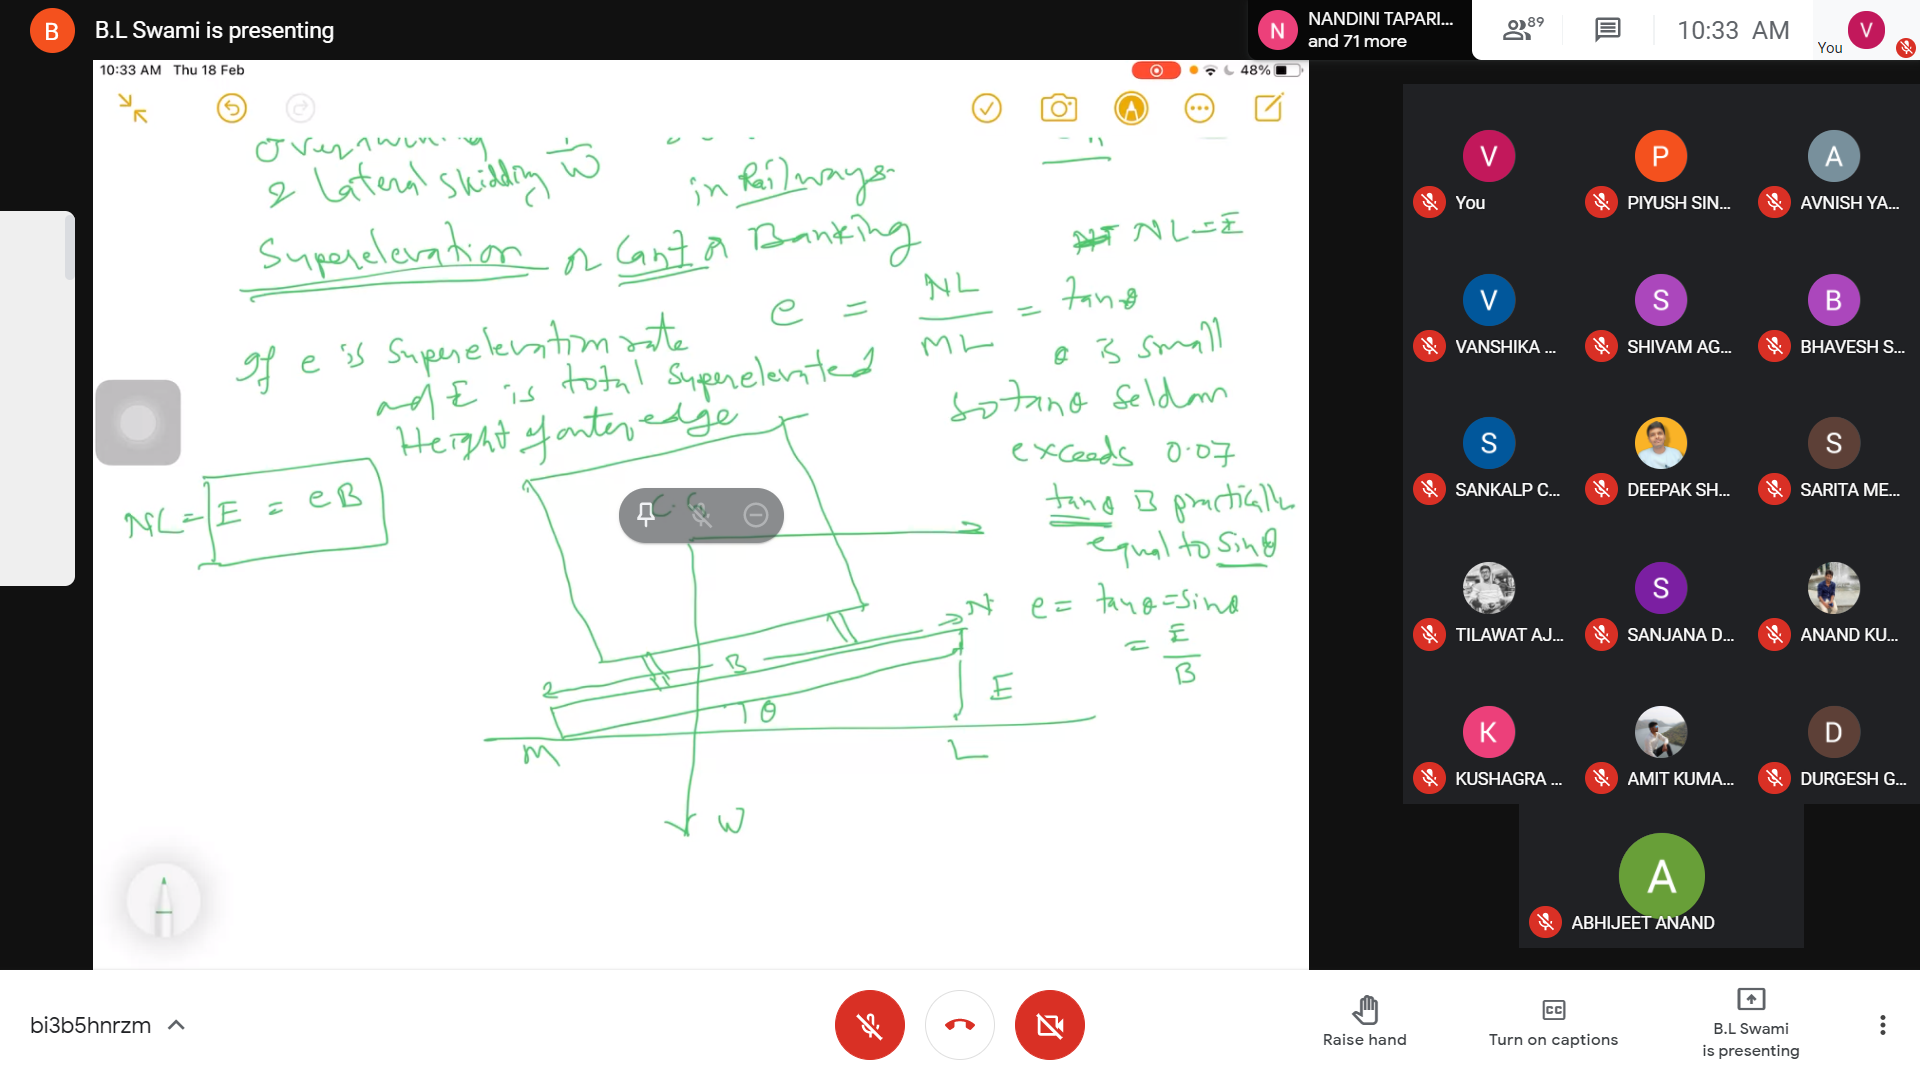 B
B.L Swami is presenting
N
NANDINI TAPARI...
and 71 more
89
10:33 AM
You
V
10:33 AM Thu 18 Feb
48%
& Lateral skidding
w
in Railways-
Superelevation or Cant or Banking
NL = E
e = NL/ML = tanθ
If e is superelevation rate
and E is total superelevated
Height of outer edge
θ is small
so tanθ seldom
exceeds 0.07
tanθ is practically
equal to sinθ
NL = E = eB
e = tanθ = sinθ
= E/B
N
B
E
θ
M
L
W
V
You
P
PIYUSH SIN...
A
AVNISH YA...
V
VANSHIKA ...
S
SHIVAM AG...
B
BHAVESH S...
S
SANKALP C...
DEEPAK SH...
S
SARITA ME...
TILAWAT AJ...
S
SANJANA D...
ANAND KU...
K
KUSHAGRA ...
AMIT KUMA...
D
DURGESH G...
A
ABHIJEET ANAND
bi3b5hnrzm
Raise hand
CC
Turn on captions
B.L Swami
is presenting